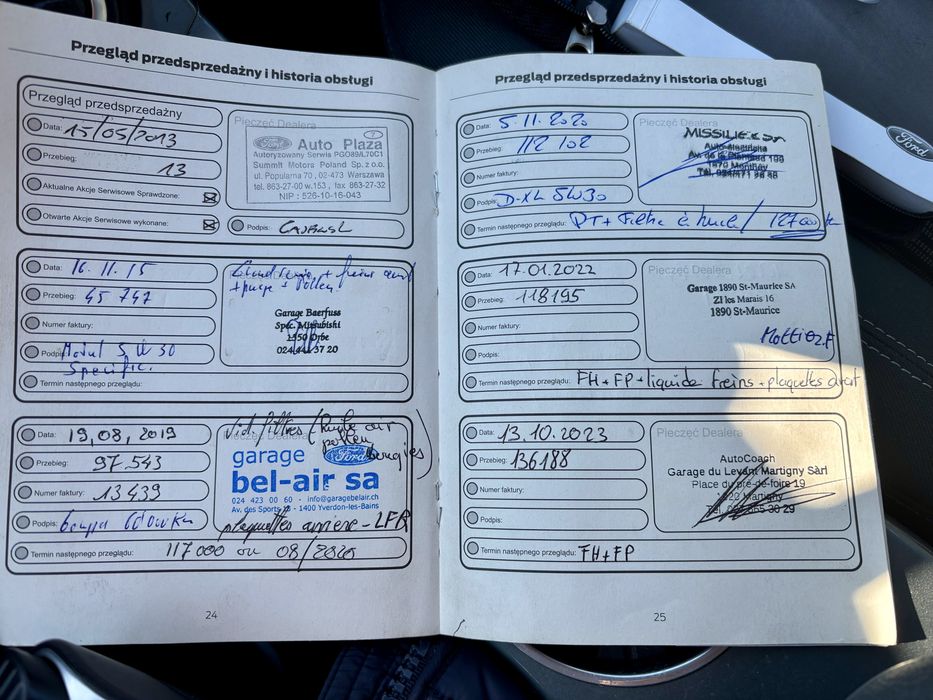 Przegląd przedsprzedażny i historia obsługi
Przegląd przedsprzedażny
Data: 15/05/2013
Przebieg: 13
Aktualne Akcje Serwisowe Sprawdzone:
Otwarte Akcje Serwisowe wykonane:
Pieczęć Dealera
Ford Auto Plaza
Autoryzowany Serwis PGO89A,70C1
Summit Motors Poland Sp. z o.o.
ul. Popularna 70, 02-473 Warszawa
tel. 863-27-00 w.153, fax 863-27-32
NIP : 526-10-16-043
Podpis:
Data: 16.11.15
Przebieg: 45 747
Numer faktury:
Podpis: 5W30
Specific.
Termin następnego przeglądu:
Grand service + freins avant
+ purge + Pollen
Garage Baerfuss
Spéc. Mitsubishi
1350 Orbe
024 441 37 20
Data: 19,08,2019
Przebieg: 97.543
Numer faktury: 13439
Podpis:
Termin następnego przeglądu: 117000 ou 08/2020
Vid. filtres (huile air
pollen
bougies)
Pieczęć Dealera
garage Ford
bel-air sa
024 423 00 60 - info@garagebelair.ch
Av. des Sports 13 - 1400 Yverdon-les-Bains
plaquettes arriere - LFR
24
Przegląd przedsprzedażny i historia obsługi
Data: 5.11.2020
Przebieg: 112102
Numer faktury:
Podpis: D-XL 5W30
Termin następnego przeglądu: PT + Filtre à huile / 127000 k
Pieczęć Dealera
Auto-électricité
1870 Monthey
Data: 17.01.2022
Przebieg: 118195
Numer faktury:
Podpis:
Termin następnego przeglądu: FH + FP + liquide freins + plaquettes avant
Pieczęć Dealera
Garage 1890 St-Maurice SA
ZI les Marais 16
1890 St-Maurice
Mottiez.F
Data: 13.10.2023
Przebieg: 136188
Numer faktury:
Podpis:
Termin następnego przeglądu: FH + FP
Pieczęć Dealera
AutoCoach
Garage du Levant Martigny Sàrl
Place du pré-de-foire 19
1920 Martigny
25
Ford